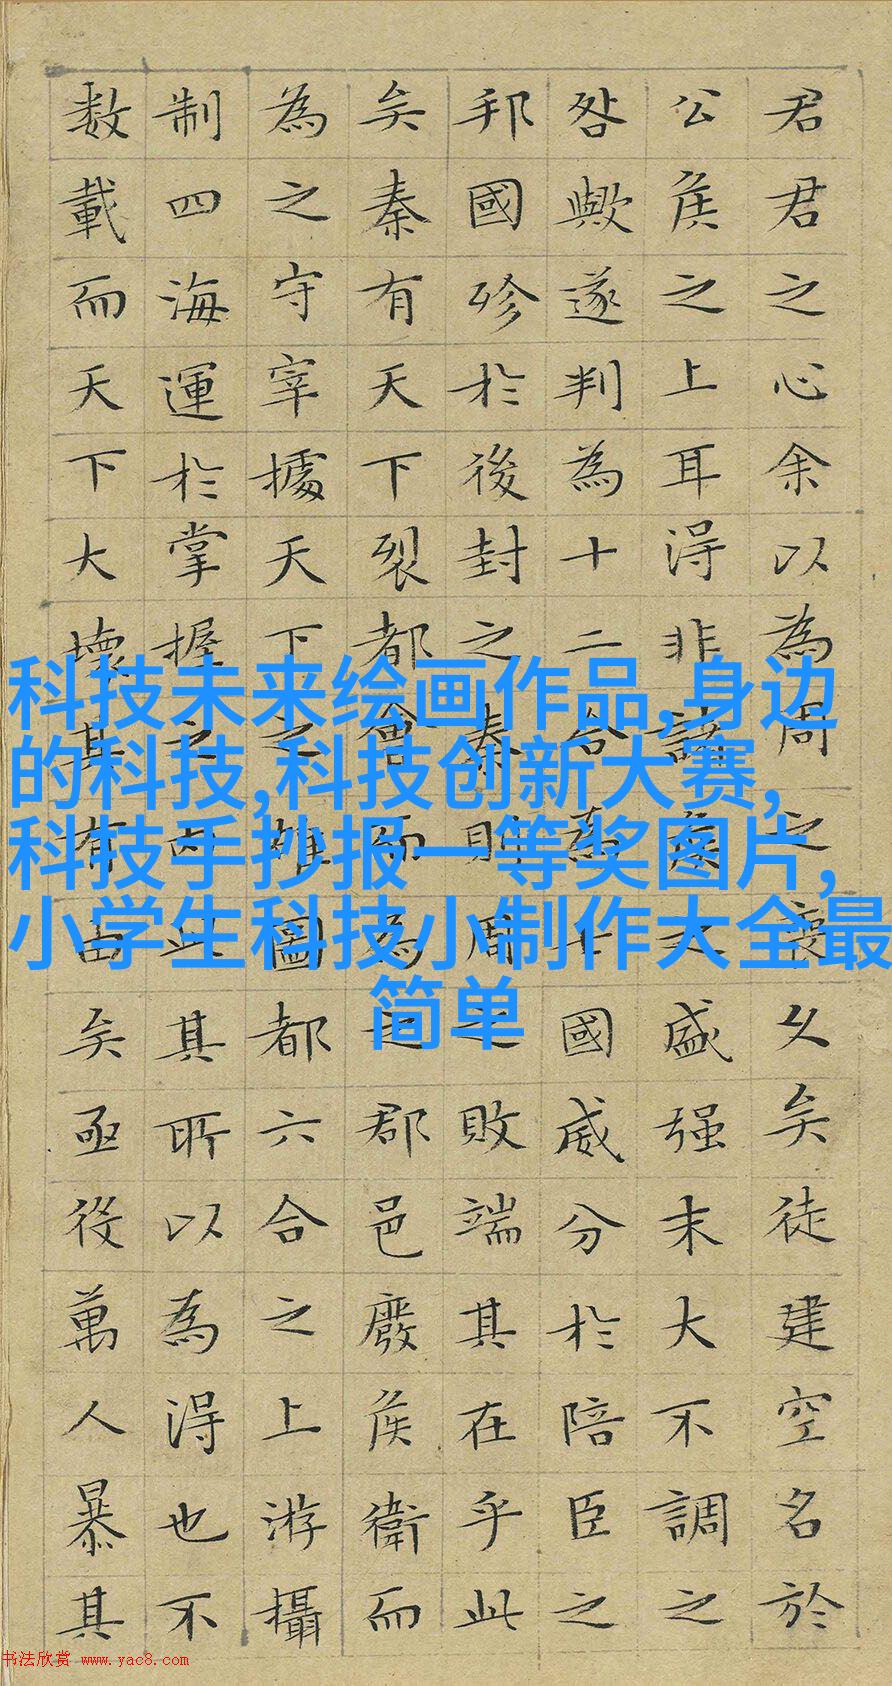 君君之心余以為周之喪久矣徒建空名於
公侯之上耳得非諸侯之盛强末大不調之
咎歟遂判為十二合為七國威分於陪臣之
邦國殄於後封之秦則周之敗端其在乎此
矣秦有天下裂都會而為之郡邑廢侯衛而
為之守宰據天下之雄圖都六合之上游攝
制四海運於掌握之内此其所以為得也不
数載而天下大壞其有由矣亟役萬人暴其
科技未来绘画作品,身边
的科技,科技创新大赛,
科技手抄报一等奖图片,
小学生科技小制作大全最
简单
书法欣赏 www.yac8.com